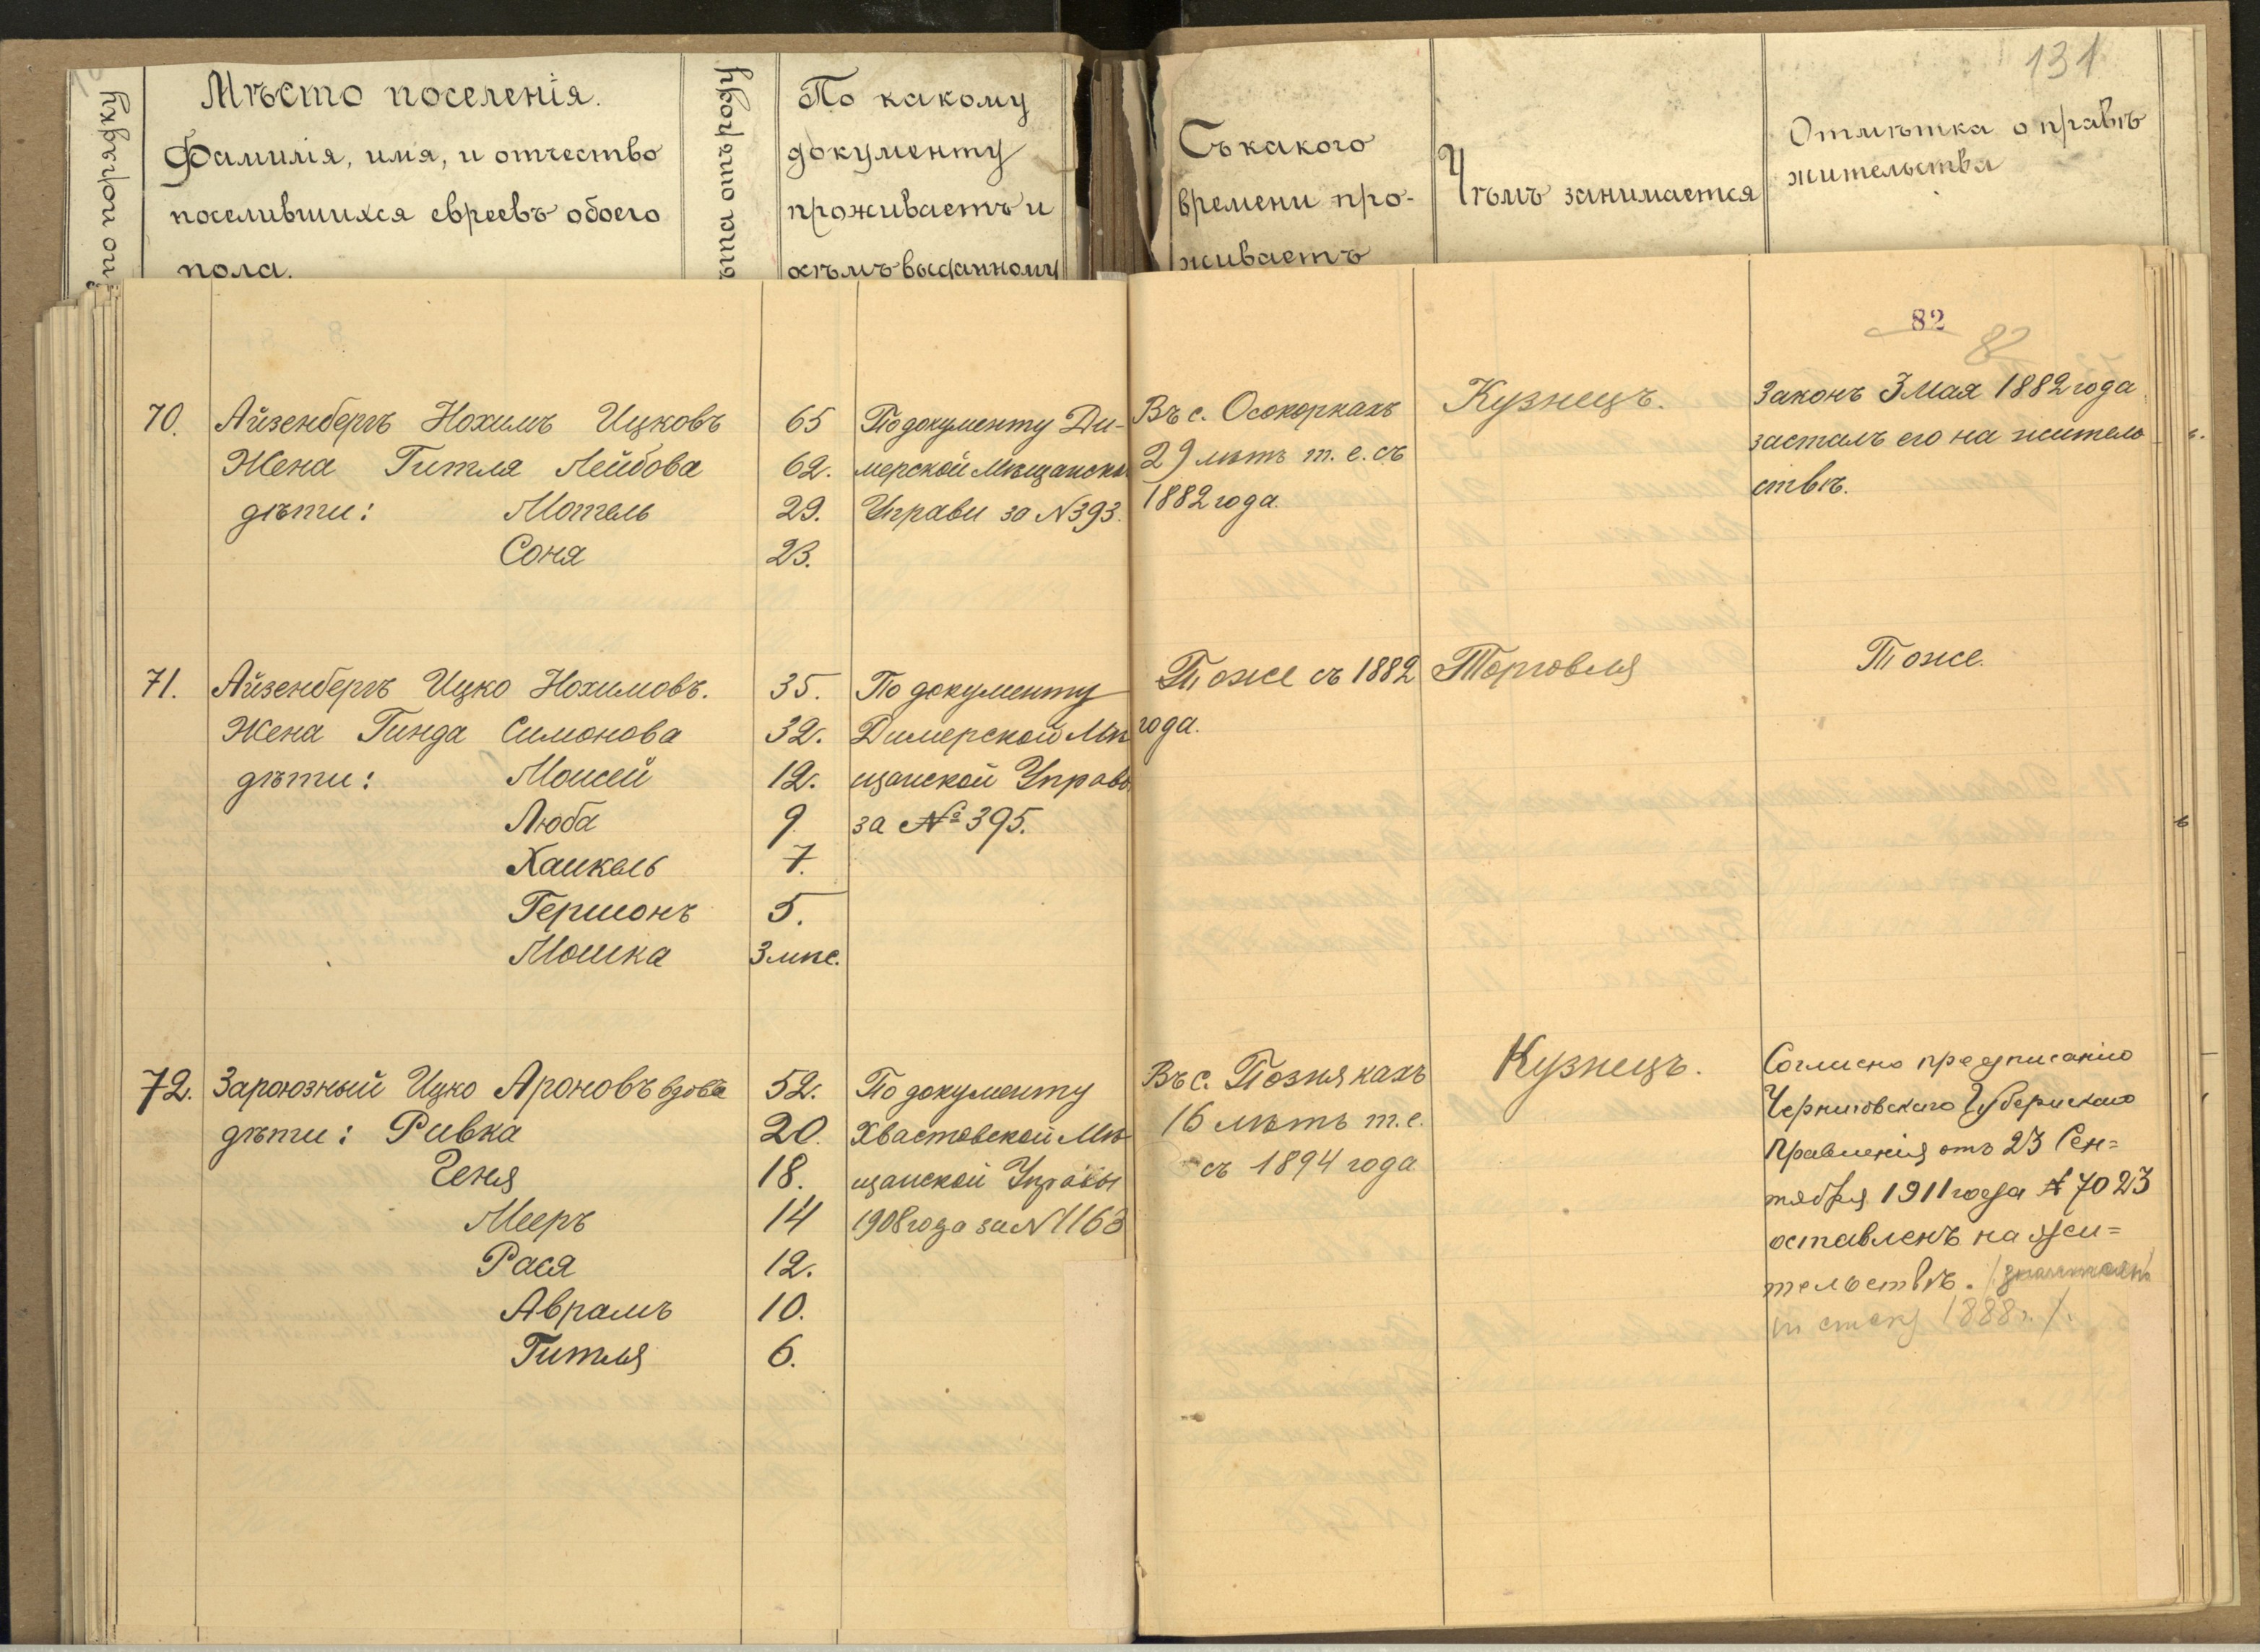 131
по порядку
Мѣсто поселенія.
Фамилія, имя, и отчество
поселившихся евреевъ обоего
пола.
ѣта отъ роду
По какому
документу
проживаетъ и
кѣмъ выданному
Съ какого
времени про-
живаетъ
Чѣмъ занимается
Отмѣтка о правѣ
жительства
82
82
70.
Айзенбергъ Нохимъ Ицковъ
65
Жена Гитля Лейбова
62.
дѣти: Мотель
29.
Соня
23.
По документу Ди-
мерской Мѣщанской
Управы за N393.
Въ с. Осокоркахъ
29 лѣтъ т. е. съ
1882 года.
Кузнецъ.
Законъ 3 Мая 1882 года
засталъ его на житель
ствѣ.
71.
Айзенбергъ Ицко Нохимовъ.
35.
Жена Гинда Симонова
32.
дѣти: Моисей
12.
Люба
9
Хаикель
7.
Гершонъ
5.
Мошка
3 мѣс.
По документу
Димерской Мѣ
щанской Управы
за № 395.
Тоже съ 1882
года.
Торговля
Тоже.
72.
Зароюзный Ицко Ароновъ вдовъ
52.
дѣти: Ривка
20.
Геня
18.
Мееръ
14
Рася
12.
Аврамъ
10.
Гитля
6.
По документу
Хвастовской Мѣ
щанской Управы
1908 года за N1163
Въ с. Познякахъ
16 лѣтъ т. е.
съ 1894 года
Кузнецъ.
Согласно предписанію
Черниговскаго Губернскаго
Правленія отъ 23 Сен=
тября 1911 года № 7023
оставленъ на жи=
тельствѣ.
1888 г.).